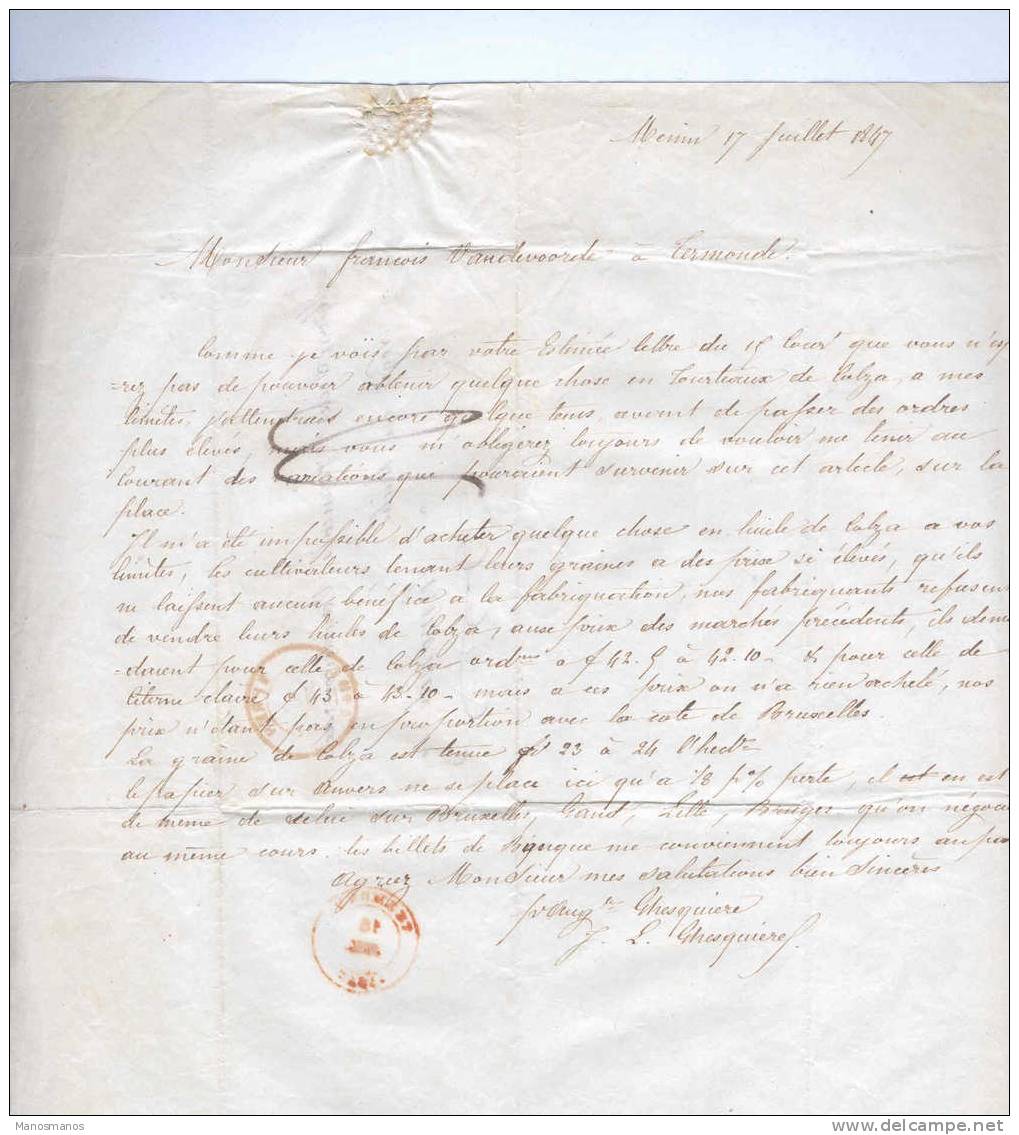 Menin 17 Juillet 1847
Monsieur francois Vandevoorde à Termonde.
Comme je vois par votre Estimée lettre du 15 Cour.t que vous n'esp
=rez pas de pouvoir obtenir quelque chose en Tourteaux de Colza, a mes
limites, j'attendrais encore quelque tems, avant de passer des ordres
plus élevés, mais vous m'obligerez toujours de vouloir me tenir au
Courant des variations qui pouraient survenir sur cet article, sur la
place.
Il m'a été impossible d'acheter quelque chose en huile de Colza a vos
limites, les cultivateurs tenant leurs graines a des prix si élevés, qu'ils
ni laissent aucun bénéfice a la fabriquation, nos fabriquants refusent
de vendre leurs huiles de Colza, aux prix des marchés précédents, ils dema
-daient pour celle de Colza ord.res a f 42.5 à 42.10 - & pour celle de
Citerne claire f 43 à 43-10 - mais a ces prix on n'a rien acheté, nos
prix n'étant pas en proportion avec la cote de Bruxelles.
La graine de Colza est tenue fr 23 à 24 l'hect.re
le papier sur Anvers ne se place ici qu'a 1/8 p% perte, il est en est
de même de celui sur Bruxelles, Gand, Lille, Bruges qu'on négocie
au même cours. les billets de Banque me conviennent toujours au pair
Agréez Monsieur mes salutations bien sincères
pr Aug.te Ghesquiere
J. L. Ghesquiere
Manosmanos
www.delcampe.net